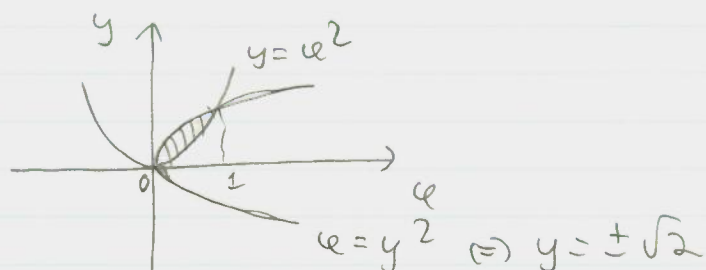 y
y = x²
0 1
x
x = y² ⇔ y = ± √2